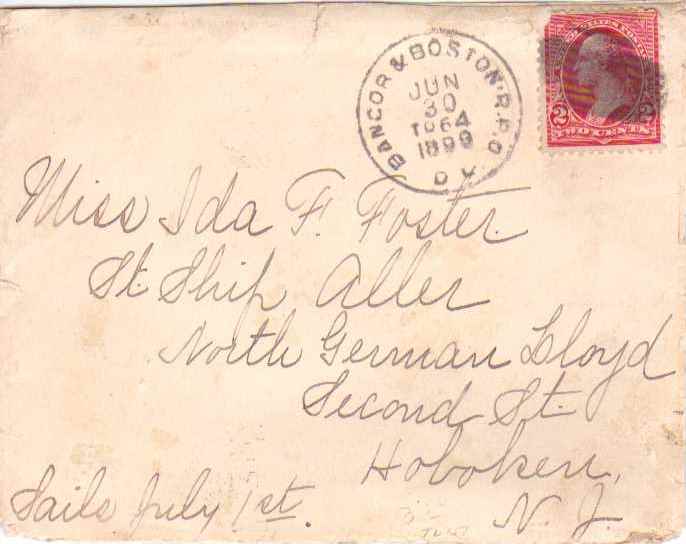 BANGOR & BOSTON R.P.O.
JUN
30
TR64
1899
D V.
UNITED STATES POSTAGE
2 2
TWO CENTS
Miss Ida F. Foster.
St. Ship Aller
North German Lloyd
Second St.
Hoboken,
N. J.
Sails July 1st.